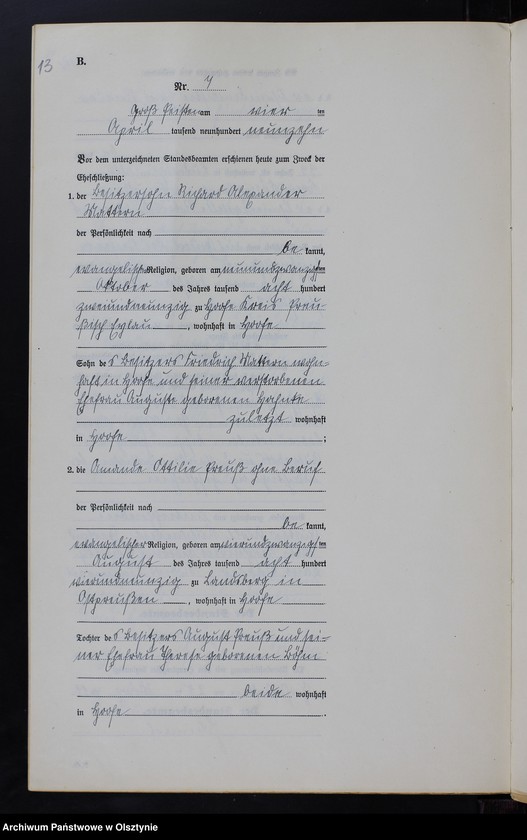 13
B.
Nr. 4
Groß Peisten am vier ten
April tausend neunhundert neunzehn
Vor dem unterzeichneten Standesbeamten erschienen heute zum Zweck der
Eheschließung:
1. der Besitzersohn Richard Alexander
Mattern
der Persönlichkeit nach
be kannt,
evangelischer Religion, geboren am neunundzwanzigsten
Oktober des Jahres tausend acht hundert
zweiundneunzig zu Hoofe Kreis Preu-
ßisch Eylau, wohnhaft in Hoofe
Sohn des Besitzers Friedrich Mattern wohn-
haft in Hoofe und seiner verstorbenen
Ehefrau Auguste geborenen
zuletzt wohnhaft
in Hoofe ;
2. die Amande Ottilie Preuß ohne Beruf
der Persönlichkeit nach
be kannt,
evangelischer Religion, geboren am vierundzwanzigsten
August des Jahres tausend acht hundert
vierundneunzig zu Landsberg in
Ostpreußen, wohnhaft in Hoofe
Tochter des Besitzers August Preuß und sei-
ner Ehefrau Therese geborenen Böhm
beide wohnhaft
in Hoofe .
Archiwum Państwowe w Olsztynie